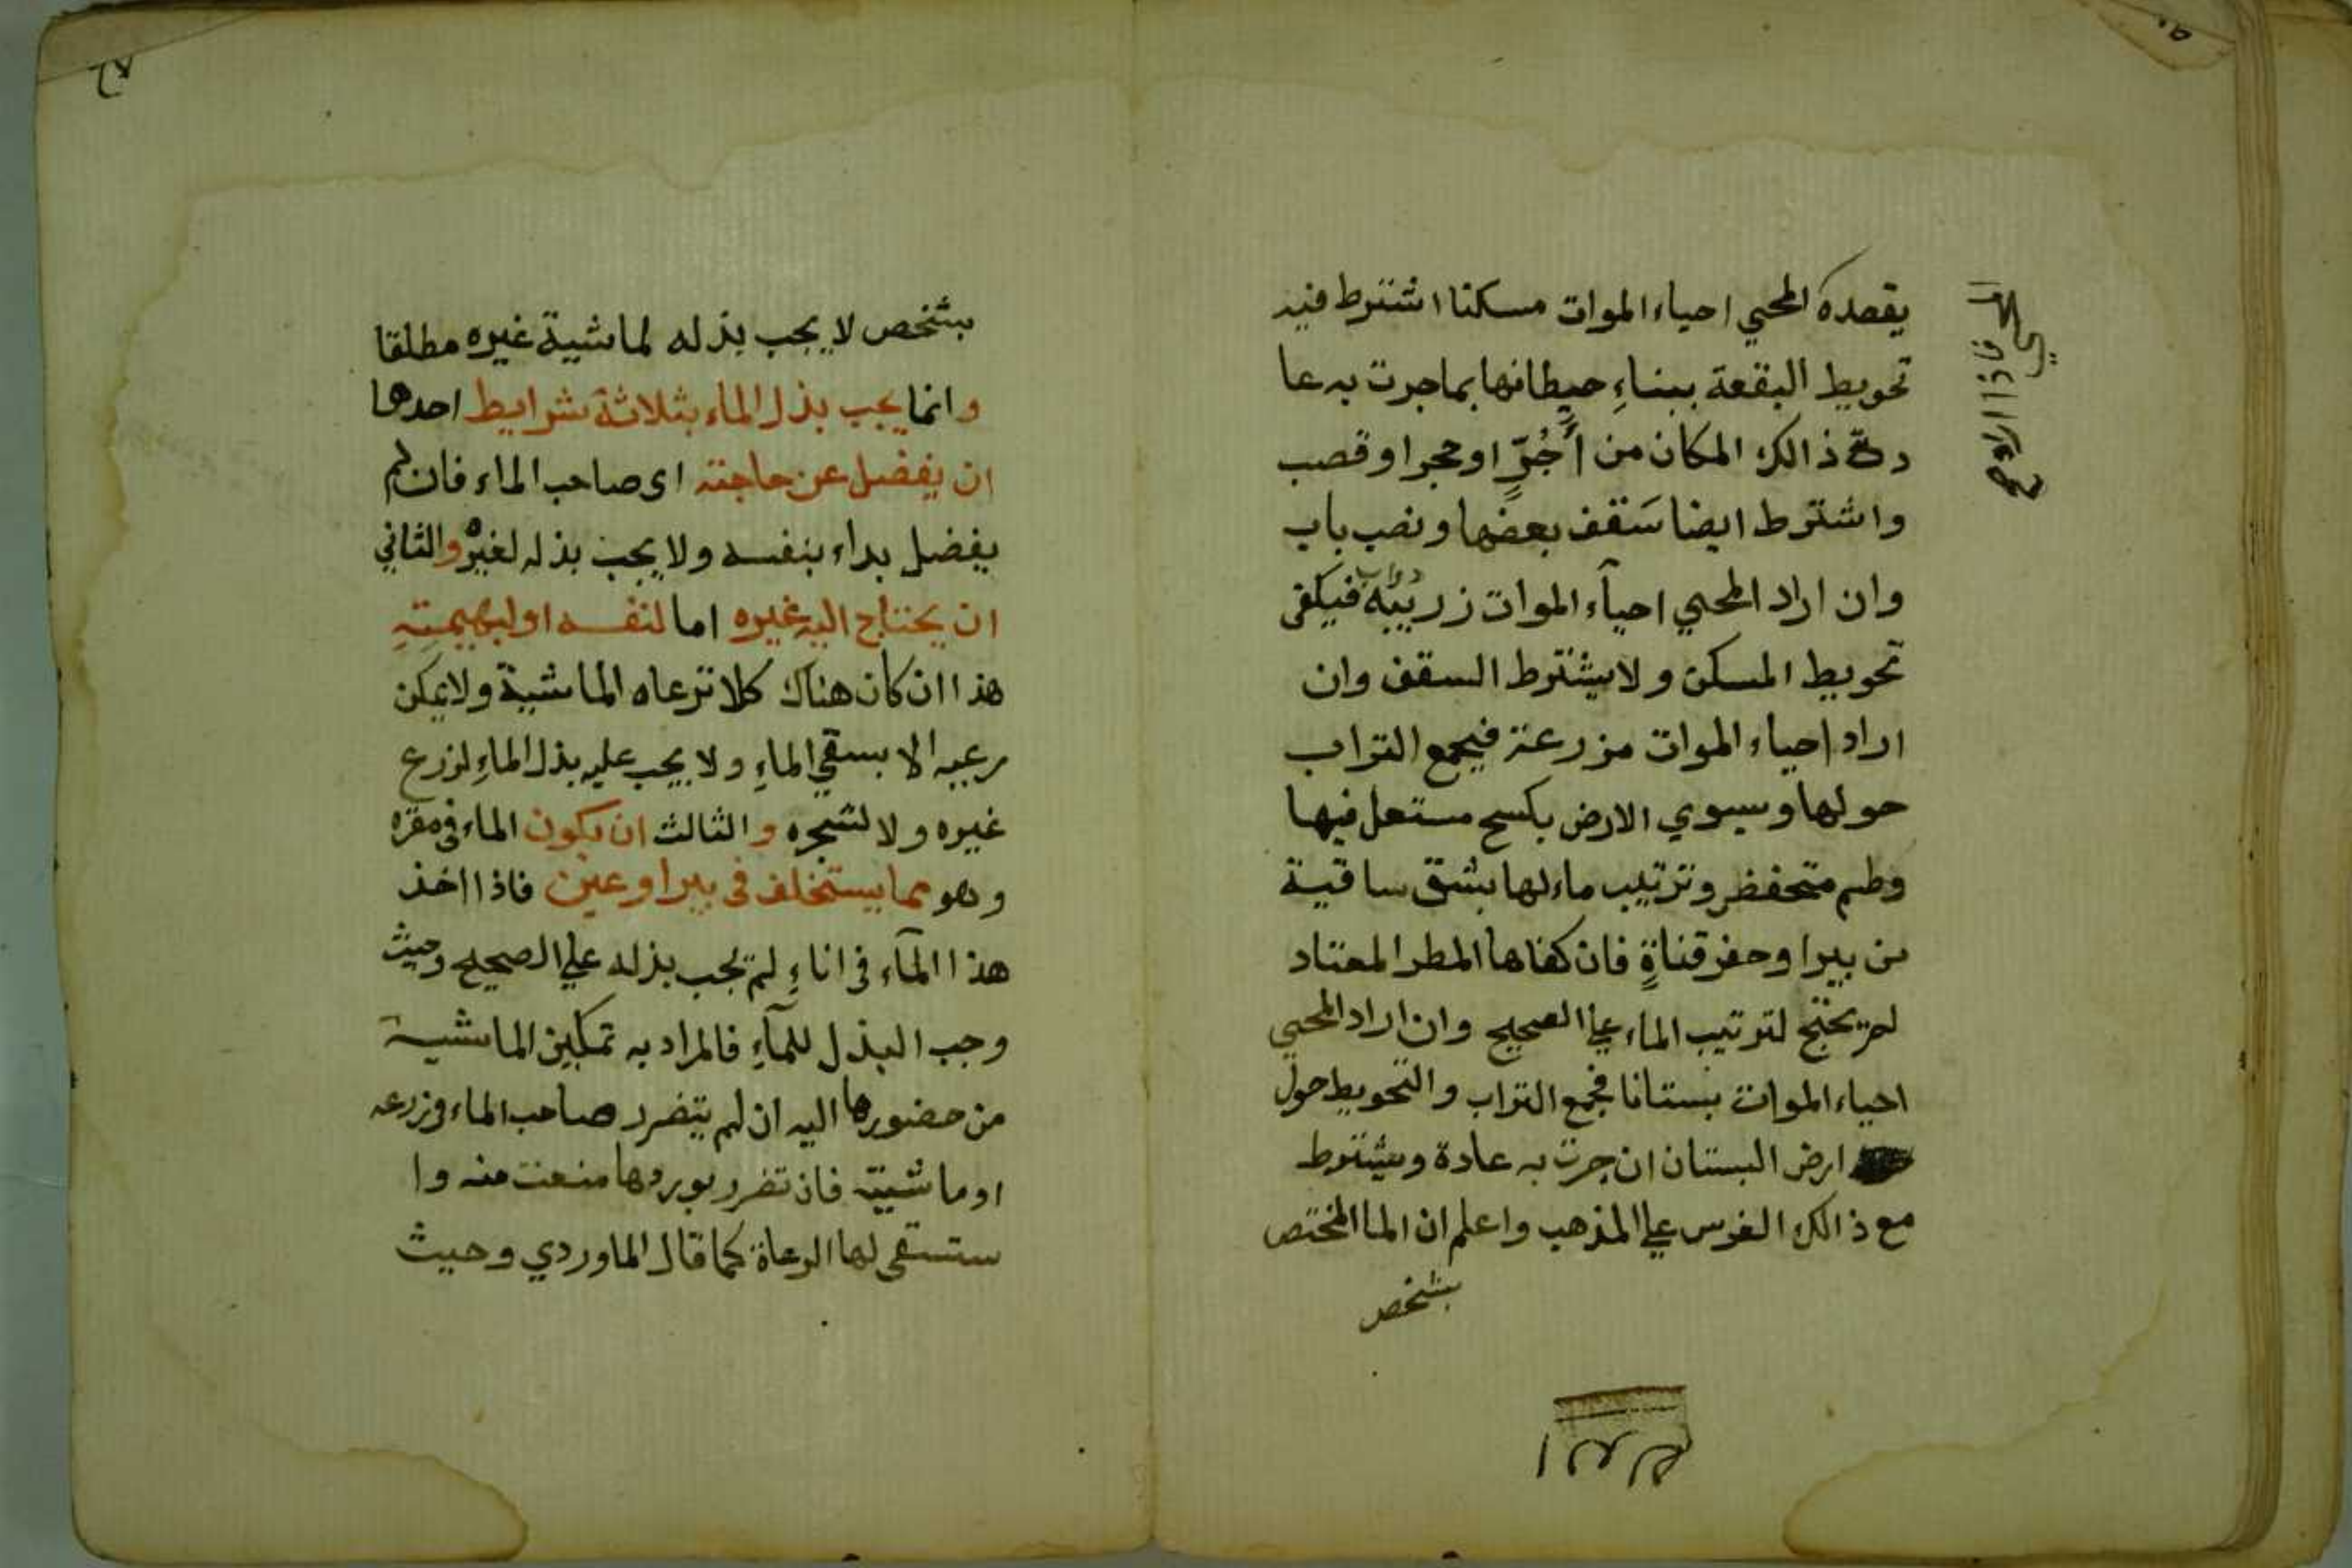 يقصده المحيي احياء الموات مسكنا اشترط فيه
تحويط البقعة ببناءِ حيطانها بما جرت به عا
دة ذالك المكان من أَجُرّ او حجر او قصب
واشترط ايضا سَقف بعضها ونصب باب
وان اراد المحيي احيآء الموات زريبه دواب فيكفى
تحويط المسكن ولا يشترط السقف وان
اراد احياء الموات مزرعة فيجمع التراب
حولها ويسوي الارض بكسح مستعل فيها
وطم متحفظ وترتيب ماء لها بشق ساقية
من بيرا وحفر قناةٍ فان كفاها المطر المعتاد
لم يحتج لترتيب الماء علي الصحيح وان اراد المحيي
احياء الموات بستانا فجمع التراب والتحويط حول
ارض البستان ان جرت به عادة ويشترط
مع ذالك الغرس علي المذهب واعلم ان الما المختص
بشخص
بشخص لا يجب بذله لماشية غيره مطلقا
وانما يجب بذل الماء بثلاثة شرايط احدها
ان يفضل عن حاجته اى صاحب الماء فان لم
يفضل بداء بنفسه ولا يجب بذله لغيره والثاني
ان يحتاج اليه غيره اما لنفسه او لبهيمتِهِ
هذا ان كان هناك كلا ترعاه الماشية ولا يمكن
رعيه الا بسقي الماءِ ولا يجب عليه بذل الماءِ لزرع
غيره ولا لشجره والثالث ان يكون الماء فى مقره
وهو مما يستخلف فى بيرا وعين فاذا اخذ
هذا المآء فى اناءٍ لم يجب بذله علي الصحيح وحيث
وجب البذل للمآءِ فالمراد به تمكين الماشية
من حضورها اليه ان لم يتضرر صاحب الماء فى زرعه
او ماشيته فان تضرر بورودها منعت منه وا
ستسقى لها الرعاة كما قال الماوردي وحيث